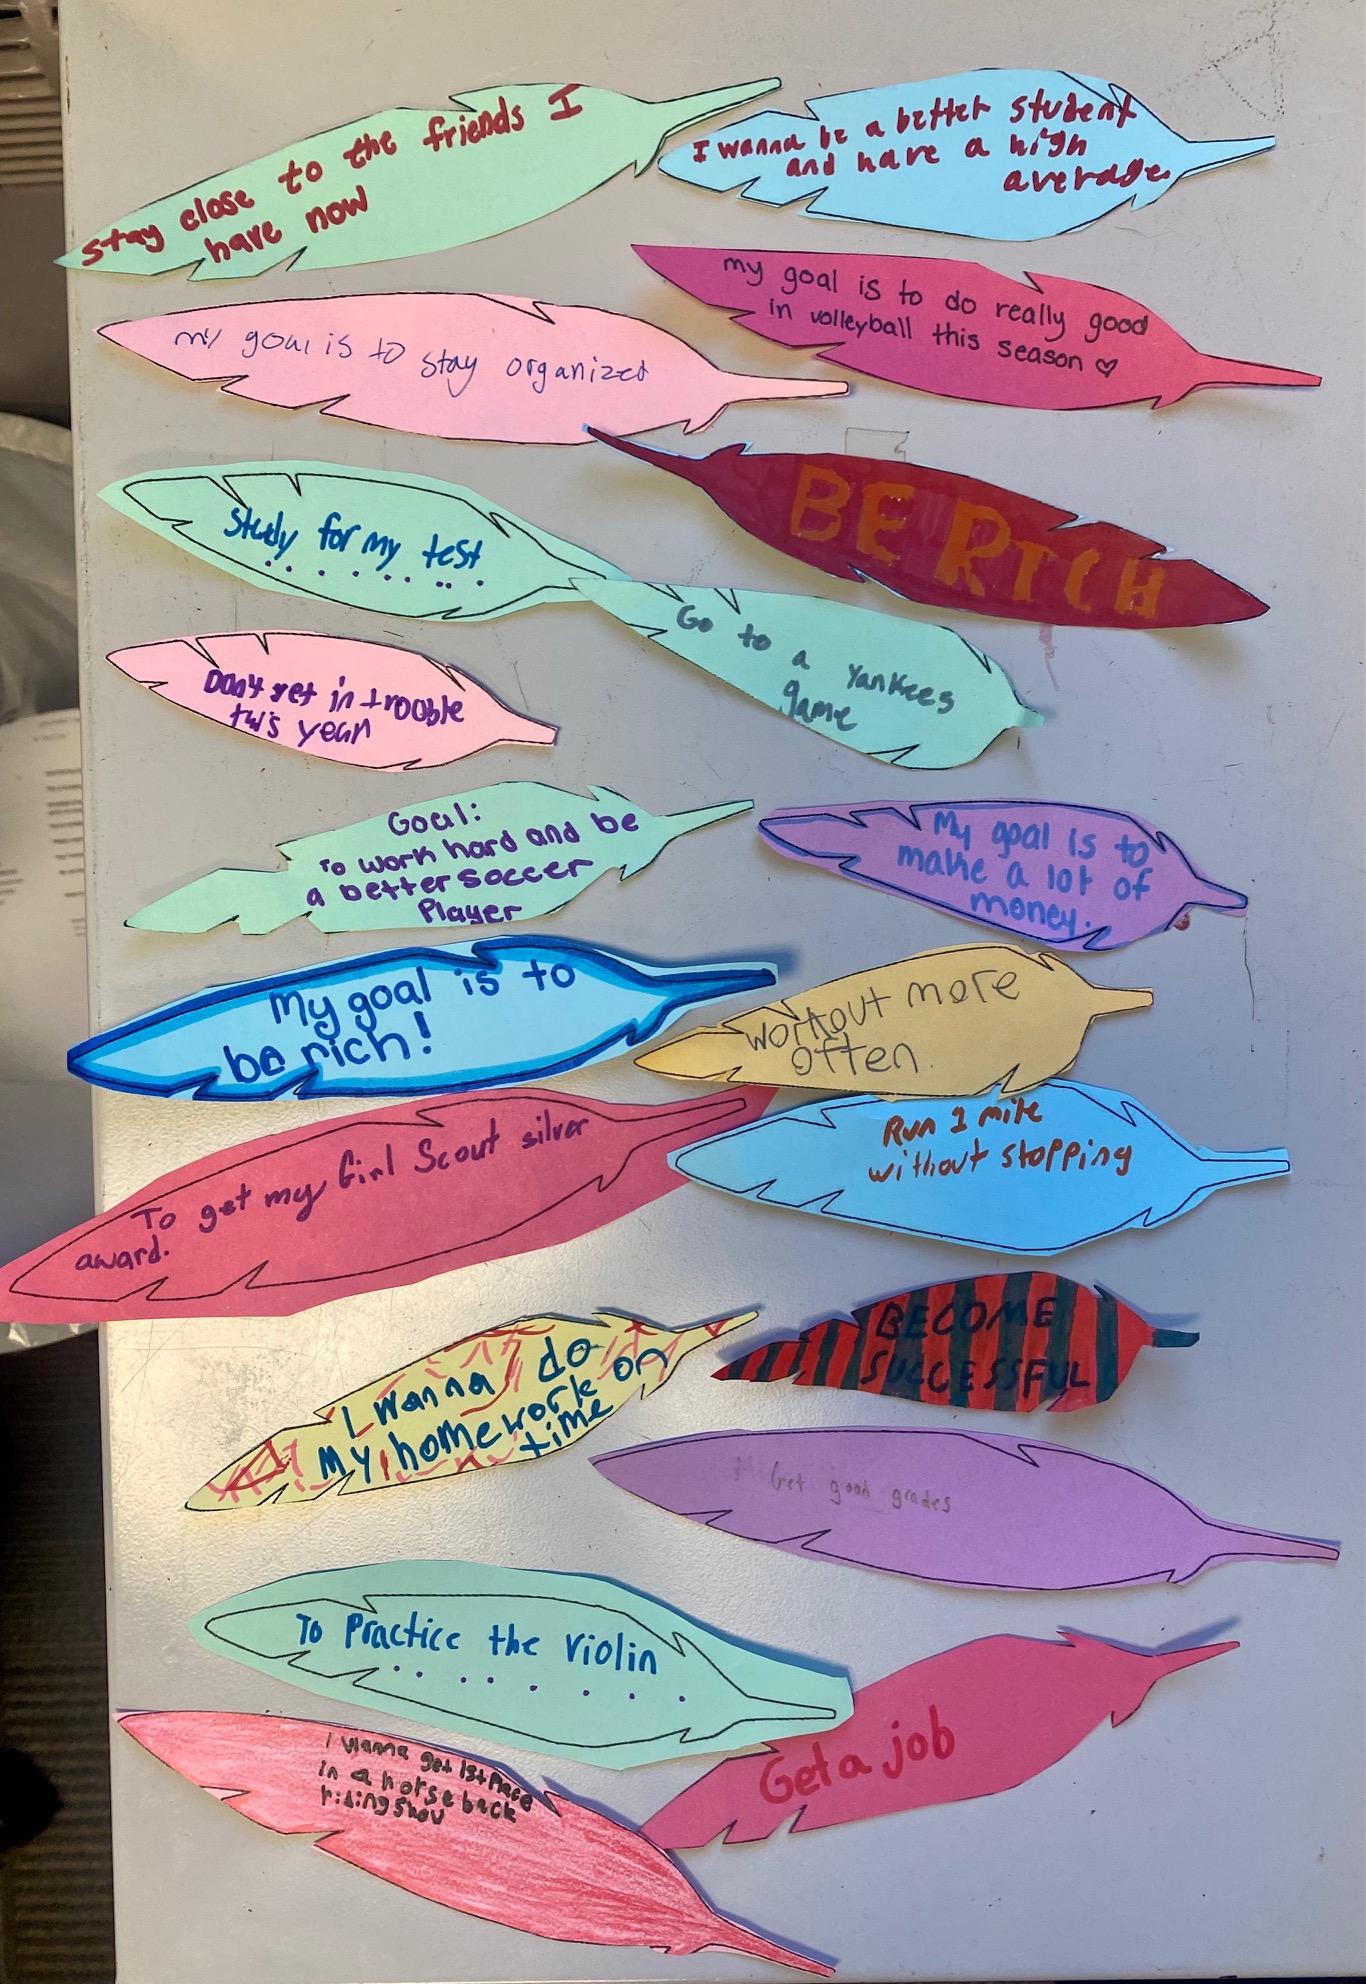 stay close to the friends I
have now
I wanna be a better student
and have a high
average.
my goal is to do really good
in volleyball this season
my goal is to stay organized
BE RICH
study for my test
Go to a Yankees
game
Don't get in trooble
this year
Goal:
To work hard and be
a better soccer
Player
My goal is to
make a lot of
money.
My goal is to
be rich!
workout more
often.
To get my Girl Scout silver
award.
Run 1 mile
without stopping
BECOME
SUCCESSFUL
I wanna do
my homework on
time
Get good grades
To Practice the violin
Get a job
I wanna get 1st Place
in a horse back
riding show